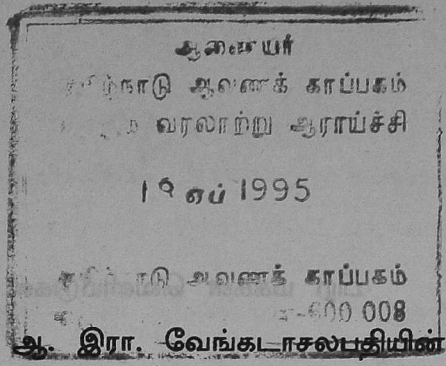 ஆணையர்
தமிழ்நாடு ஆவணக் காப்பகம்
வரலாற்று ஆராய்ச்சி
19 ஏப் 1995
தமிழ்நாடு ஆவணக் காப்பகம்
600 008
ஆ. இரா. வேங்கடாசலபதியின்